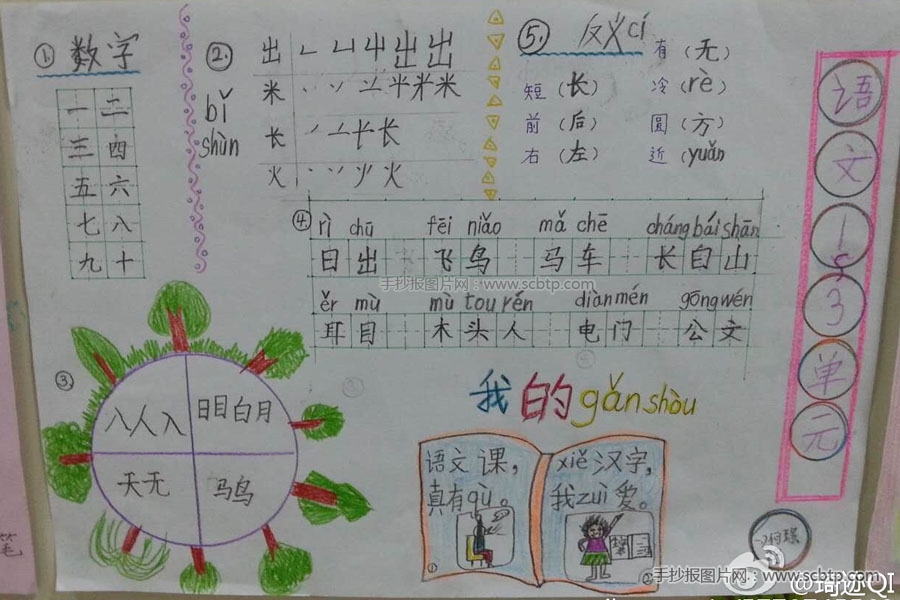 ① 数字
一 二
三 四
五 六
七 八
九 十
②
bǐ
shùn
出
米
长
火
⑤ 反义cí
有（无）
短（长） 冷（rè）
前（后） 圆（方）
右（左） 近（yuǎn
④ rì chū fēi niǎo mǎ chē cháng bái shān
日出 飞鸟 马车 长白山
ěr mù mù tou rén diàn mén gōng wén
耳目 木头人 电门 公文
③
八人入
日目白月
天无
马鸟
我的gǎn shòu
语文课，
真有qù。
xiě汉字，
我zuì爱。
语
文
1
5
3
单
元
手抄报图片网：www.scbtp.com
手抄报图片网：www.scbtp.com
@琦迹QI